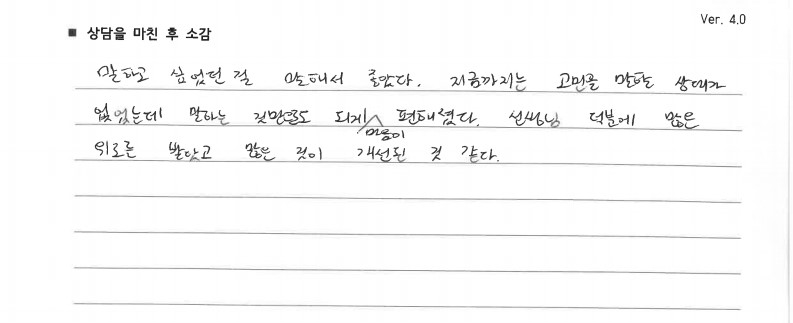 Ver. 4.0
■ 상담을 마친 후 소감
말하고 싶었던 걸 말해서 좋았다. 지금까지는 고민을 말할 상대가
없었는데 말하는 것만으로도 되게 마음이 편해졌다. 선생님 덕분에 많은
위로를 받았고 많은 것이 개선된 것 같다.